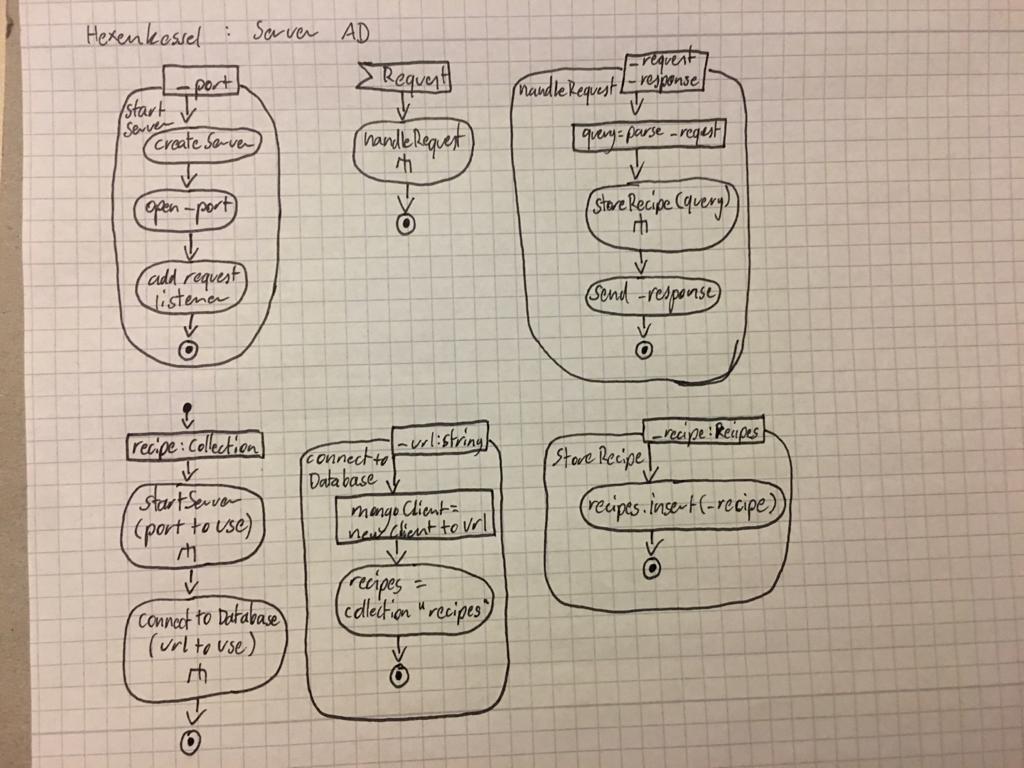 Hexenkessel : Server AD
_port
start
Server
create Server
open _port
add request
listener
Request
handleRequest
_request
_response
handleRequest
query=parse _reqest
storeRecipe(query)
send _response
recipe:Collection
startServer
(port to use)
connect to Database
(url to use)
_url:string
connect to
Database
mongoClient=
new Client to url
recipes =
collection "recipes"
_recipe:Recipes
StoreRecipe
recipes.insert(_recipe)